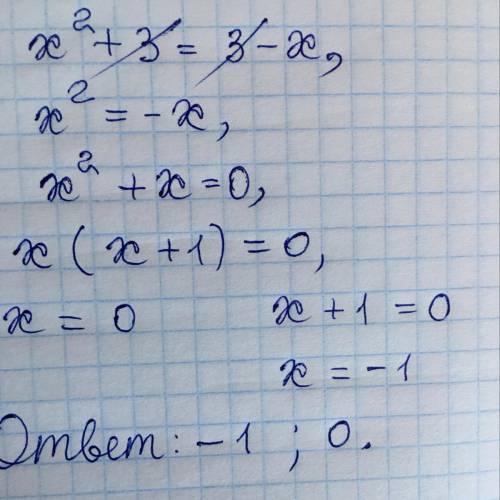 x² + 3 = 3 - x,
x² = -x,
x² + x = 0,
x ( x + 1) = 0,
x = 0 x + 1 = 0
x = -1
Ответ: -1 ; 0.